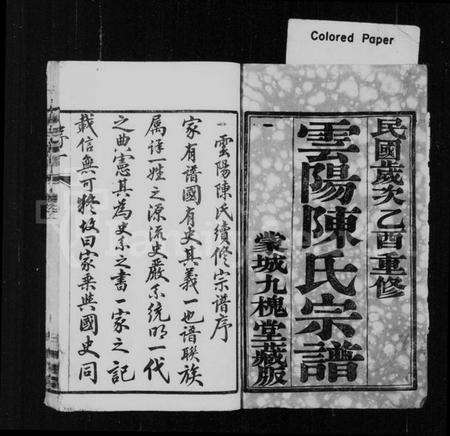 Colored Paper
民國歲次乙酉重修
雲陽陳氏宗譜
蒙城九槐堂藏版
一雲陽陳氏續修宗譜序
家有譜國有史其義一也譜聯族
属詳一姓之源流史嚴系統明一代
之典憲其為史系之書一家之記
載信無可疑故曰家乘與國史同